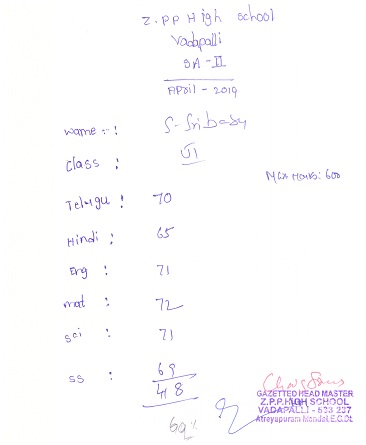 Z.P.P High school
Vadapalli
SA-II
April - 2019
Name :-: S. Sri
Class : VI
Max Marks: 600
Telugu : 70
Hindi : 65
Eng : 71
mat : 72
Sci : 71
SS : 69
418
69%
GAZETTED HEAD MASTER
Z.P.P.HIGH SCHOOL
VADAPALLI - 533 237
Atreyapuram Mandal.E.G.Dt.